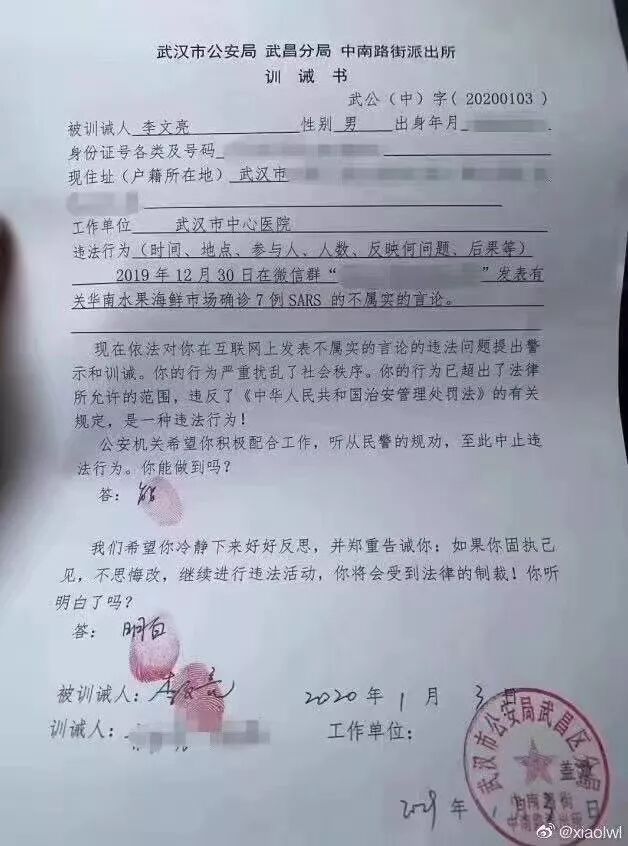 武汉市公安局 武昌分局 中南路街派出所
训 诫 书
武公（中）字（20200103）
被训诫人 李文亮 性别 男 出身年月
身份证号各类及号码
现住址（户籍所在地） 武汉市
工作单位 武汉市中心医院
违法行为（时间、地点、参与人、人数、反映何问题、后果等）
2019 年 12 月 30 日在微信群“ ”发表有
关华南水果海鲜市场确诊 7 例 SARS 的不属实的言论。
现在依法对你在互联网上发表不属实的言论的违法问题提出警
示和训诫。你的行为严重扰乱了社会秩序。你的行为已超出了法律
所允许的范围，违反了《中华人民共和国治安管理处罚法》的有关
规定，是一种违法行为！
公安机关希望你积极配合工作，听从民警的规劝，至此中止违
法行为。你能做到吗？
答：能
我们希望你冷静下来好好反思，并郑重告诫你：如果你固执己
见，不思悔改，继续进行违法活动，你将会受到法律的制裁！你听
明白了吗？
答：明白
被训诫人：李文亮 2020 年 1 月 3 日
训诫人： 工作单位：
武汉市公安局武昌区分局
盖章
中南路街
中南路派出所
年 月 日
@xiaolwl